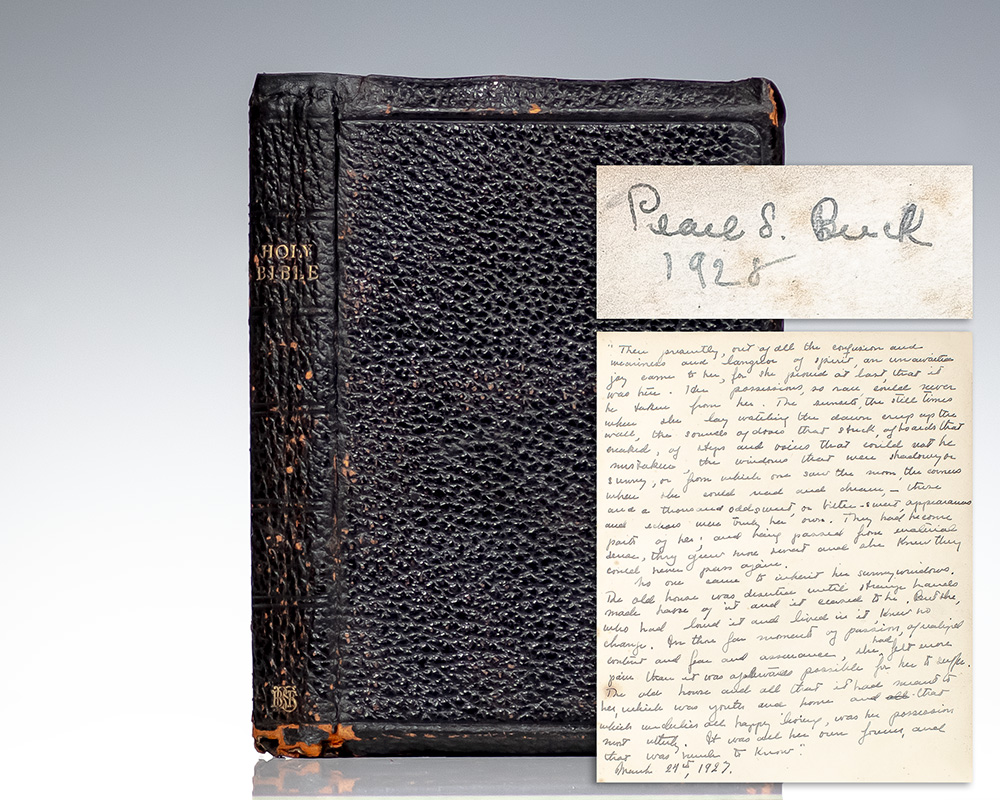 HOLY
BIBLE
Pearl S. Buck
1928
"Then presently, out of all the confusion and
weariness and languor of spirit, an unawaited
joy came to her, for she found at last that it
was hers. Her possessions, so rare could never
be taken from her. The sunsets, the still times
when she lay watching the dawn creep up the
wall, the sounds of doors that stuck, of boards that
creaked, of steps and voices that could not be
mistaken, the windows that were shadowy or
sunny, or from which one saw the moon, the corners
where she could read and dream – these
and a thousand odd sweet, or bitter-sweet, appearances
and echoes were truly her own. They had become
parts of her; and being passed from material
sense, they grew more sweet and she knew they
could never pass again.
No one came to inherit her sunny windows.
The old house was desertive until strange hands
made havoc of it and it ceased to be. But she,
who had loved it and lived in it, knew no
change. In those few moments of passion, of realized
content and fear and assurance, she had felt more
pain than it was afterwards possible for her to suffer.
The old house and all that it had meant to
her, which was youth and home and all that
which underlies all happy living, was her possession
most utterly. It was all her own forever, and
that was much to know."
March 24th, 1927.